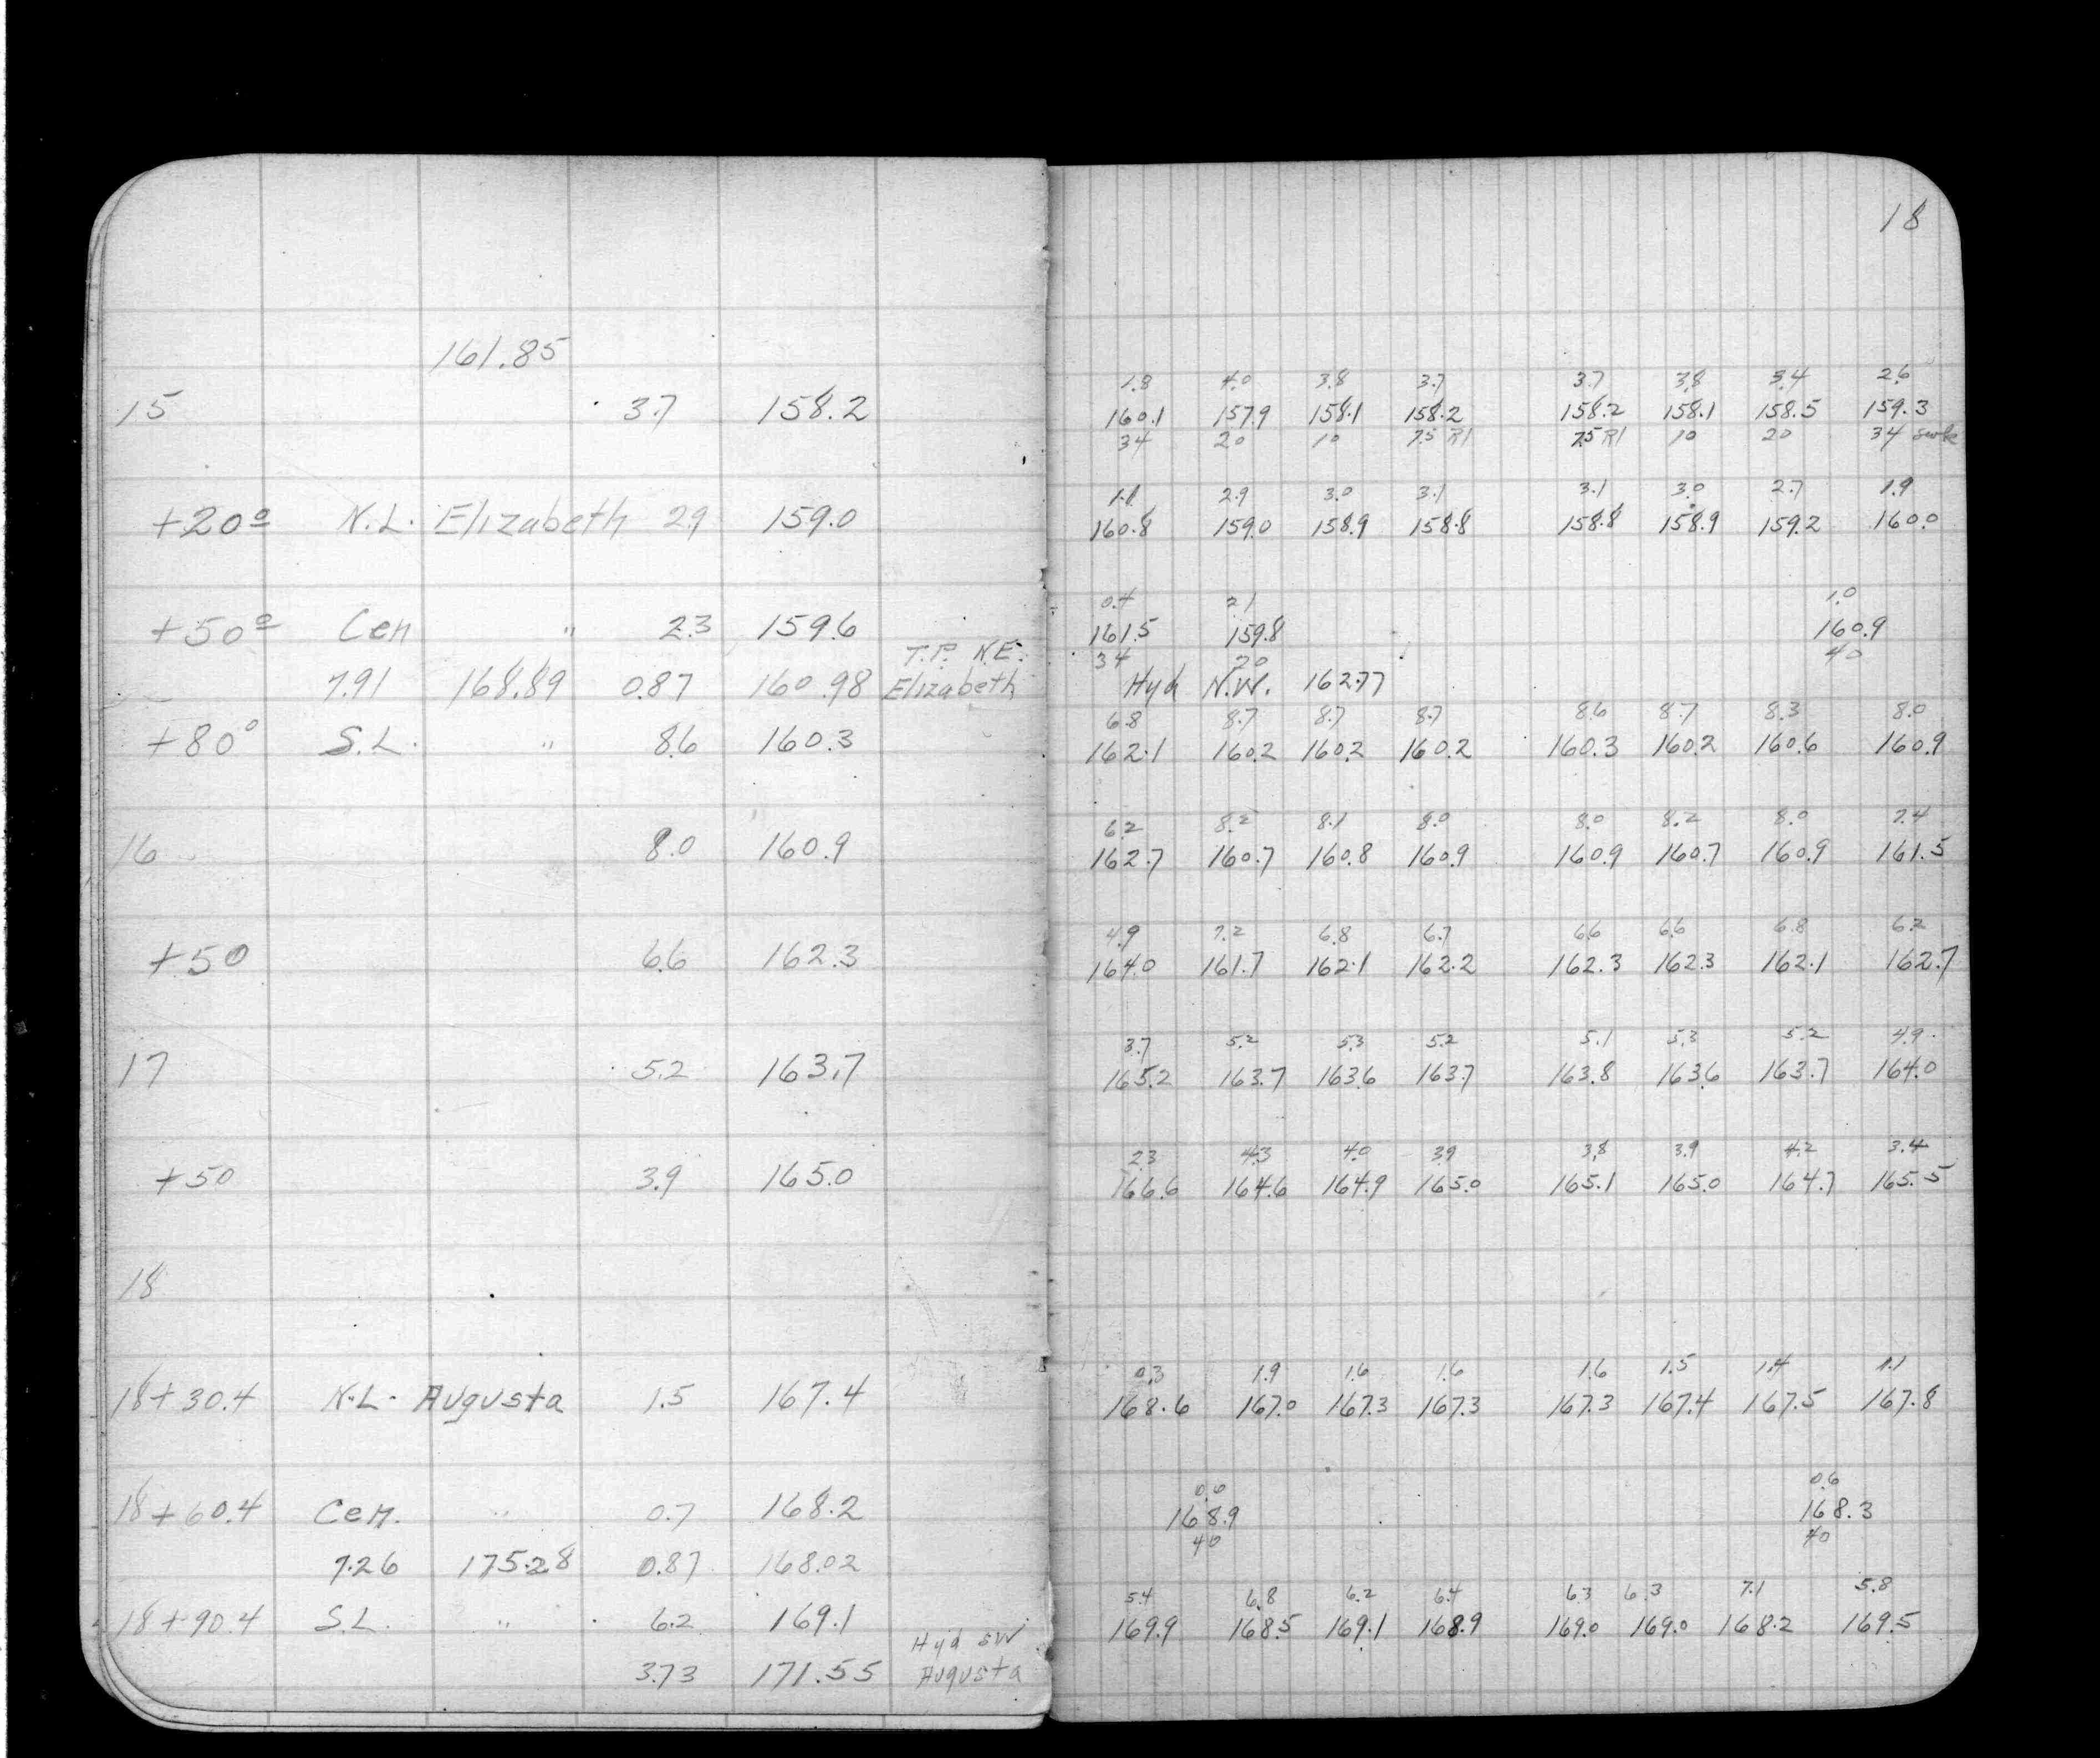 161.85
15 3.7 158.2
+20º N.L. Elizabeth 2.9 159.0
+50º Cen " 2.3 159.6
T.P. N.E.
7.91 168.89 0.87 160.98 Elizabeth
+80º S.L. " 8.6 160.3
16 8.0 160.9
+50 6.6 162.3
17 5.2 163.7
+50 3.9 165.0
18
18+30.4 N.L. Augusta 1.5 167.4
18+60.4 Cen. " 0.7 168.2
7.26 175.28 0.87 168.02
18+90.4 S.L. " 6.2 169.1
Hyd SW
3.73 171.55 Augusta
18
1.8 4.0 3.8 3.7 3.7 3.8 3.4 2.6
160.1 157.9 158.1 158.2 158.2 158.1 158.5 159.3
34 20 10 7.5 Rl 7.5 Rl 10 20 34 swk
1.1 2.9 3.0 3.1 3.1 3.0 2.7 1.9
160.8 159.0 158.9 158.8 158.8 158.9 159.2 160.0
0.4 2.1 1.0
161.5 159.8 160.9
34 20 40
Hyd N.W. 162.77
6.8 8.7 8.7 8.7 8.6 8.7 8.3 8.0
162.1 160.2 160.2 160.2 160.3 160.2 160.6 160.9
6.2 8.2 8.1 8.0 8.0 8.2 8.0 7.4
162.7 160.7 160.8 160.9 160.9 160.7 160.9 161.5
4.9 7.2 6.8 6.7 6.6 6.6 6.8 6.2
164.0 161.7 162.1 162.2 162.3 162.3 162.1 162.7
3.7 5.2 5.3 5.2 5.1 5.3 5.2 4.9
165.2 163.7 163.6 163.7 163.8 163.6 163.7 164.0
2.3 4.3 4.0 3.9 3.8 3.9 4.2 3.4
166.6 164.6 164.9 165.0 165.1 165.0 164.7 165.5
0.3 1.9 1.6 1.6 1.6 1.5 1.4 1.1
168.6 167.0 167.3 167.3 167.3 167.4 167.5 167.8
0.0 0.6
168.9 168.3
40 40
5.4 6.8 6.2 6.4 6.3 6.3 7.1 5.8
169.9 168.5 169.1 168.9 169.0 169.0 168.2 169.5